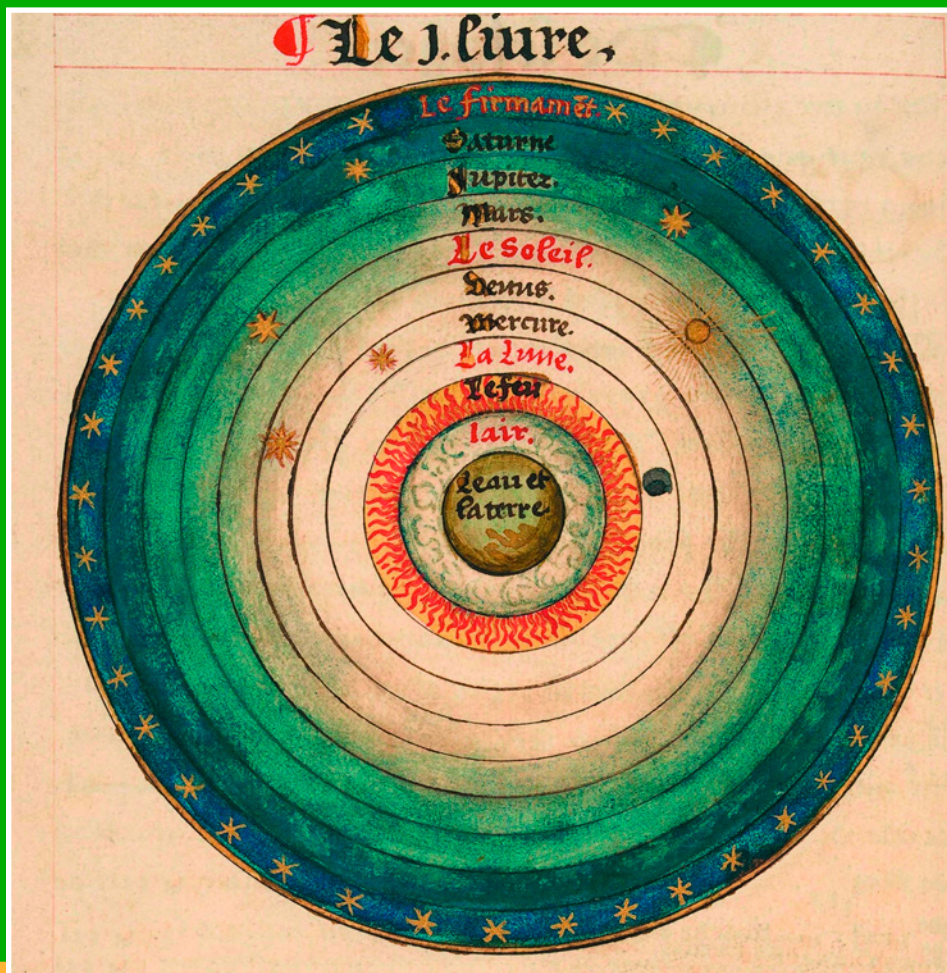 Le j. liure,
Le firmamēt.
Saturne
Jupiter.
Mars.
Le Soleil.
Venus.
Mercure.
La Lune.
Le feu
lair.
Leau et
la terre